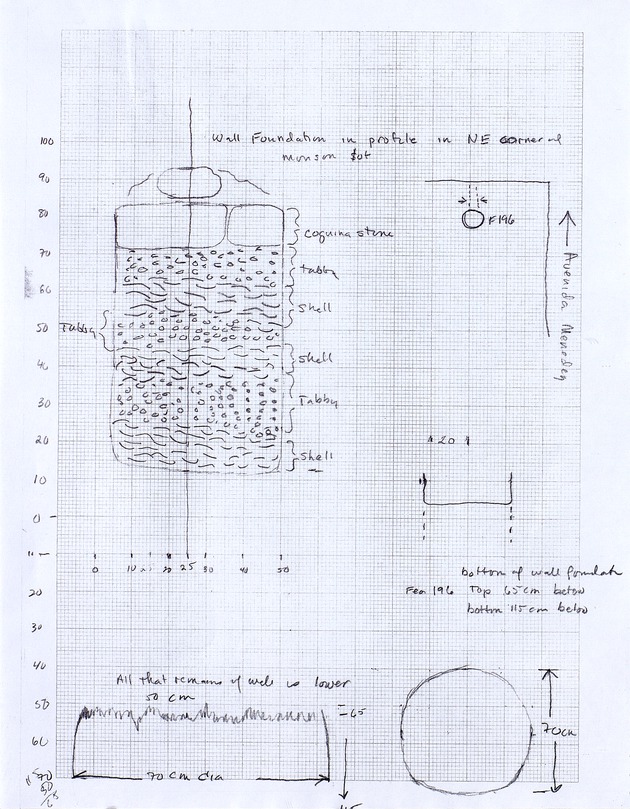 Wall Foundation in profile in NE corner of
monson lot
100
90
80
70
60
50
40
30
20
10
0
10
20
30
40
50
60
70
coquina stone
tabby
shell
Tabby
shell
Tabby
shell
0
10
20
25
30
40
50
F196
Avenida Menedez
20
bottom of wall foundat
Fea 196 Top 65 cm below
bottom 115 cm below
All that remains of well is lower
50 cm
65
70 cm dia
70cm
115